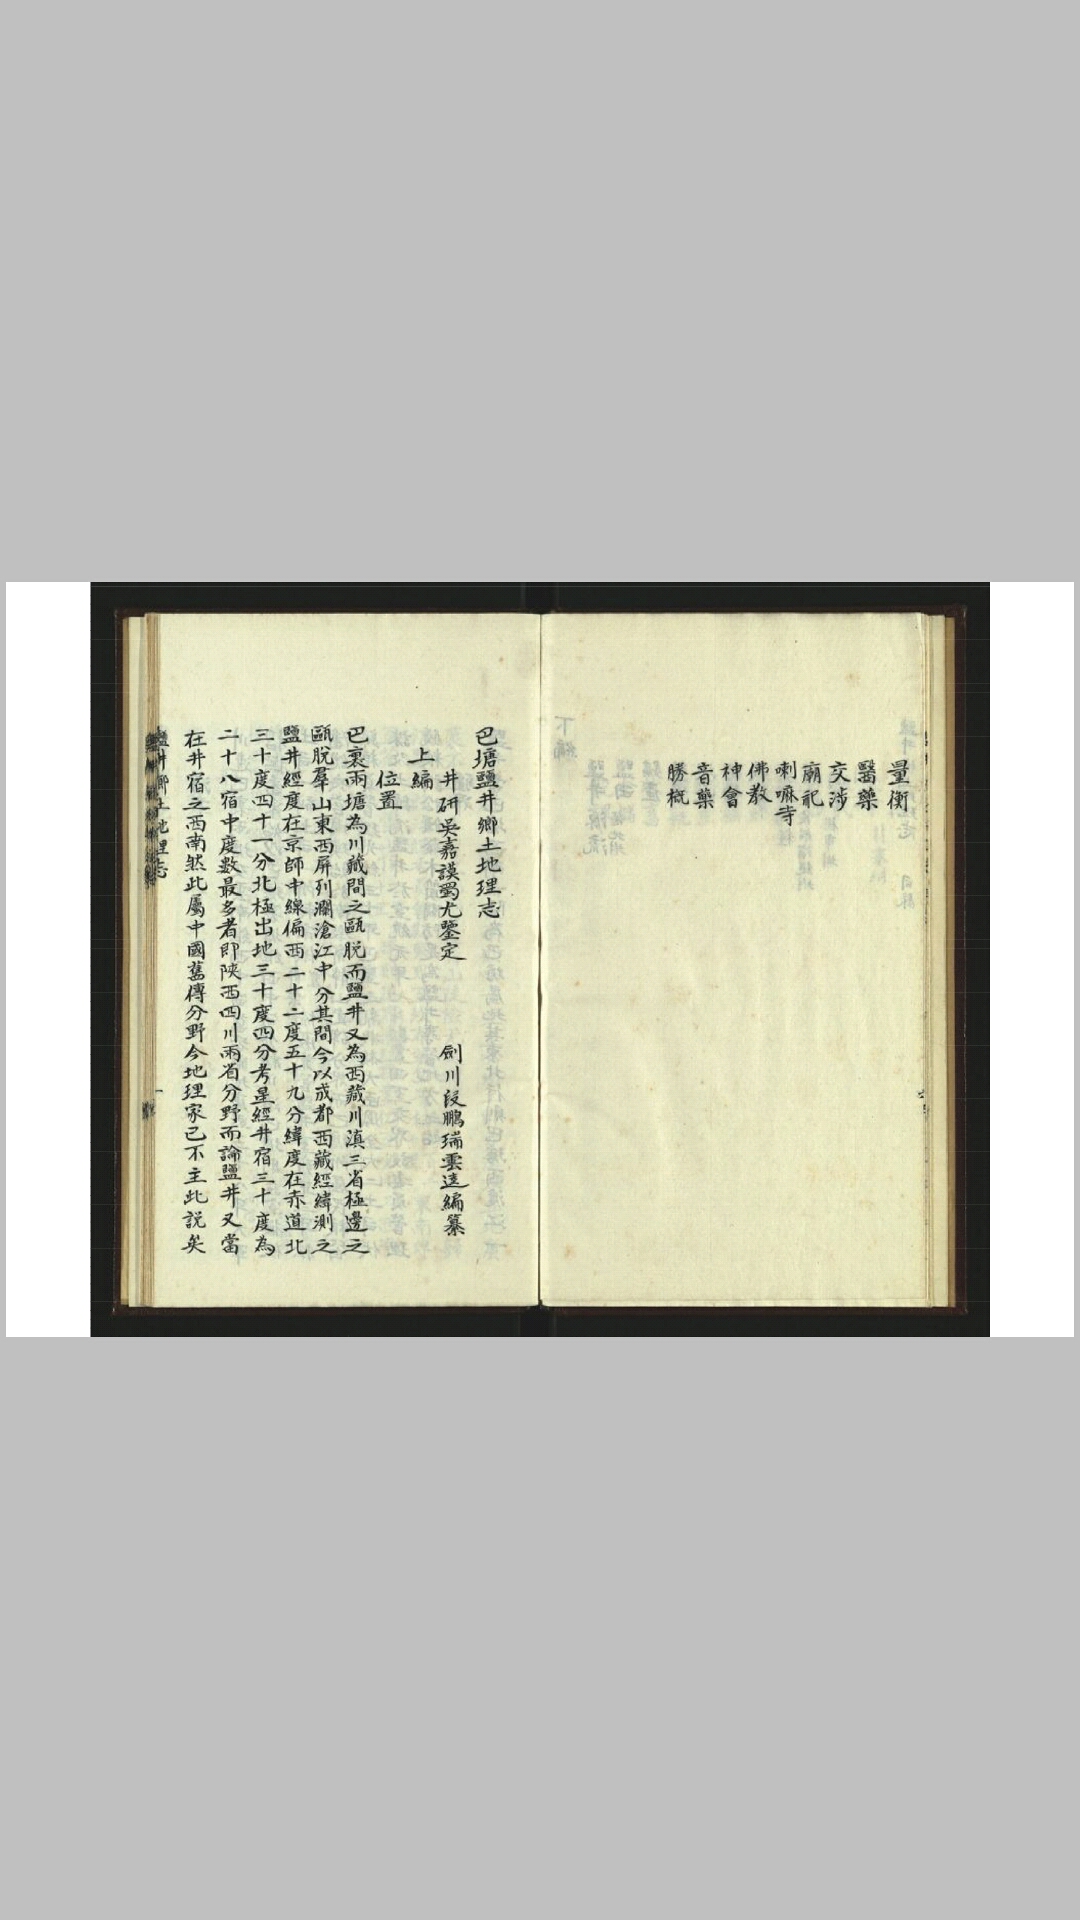 量衡
醫藥
交涉
廟祀
喇嘛寺
佛教
神會
音藥
勝概
巴塘鹽井鄉土地理志
井研吳嘉謨蜀尤鑒定 劍川段鵬瑞雲逵編纂
上編
位置
巴裏兩塘為川藏間之甌脫而鹽井又為西藏川滇三省極邊之
甌脫羣山東西屏列瀾滄江中分其間今以成都西藏經緯測之
鹽井經度在京師中線偏西二十二度五十九分緯度在赤道北
三十度四十一分北極出地三十度四分考星經井宿三十度為
二十八宿中度數最多者即陝西四川兩省分野而論鹽井又當
在井宿之西南然此屬中國舊傳分野今地理家已不主此說矣
鹽井鄉土地理志
一